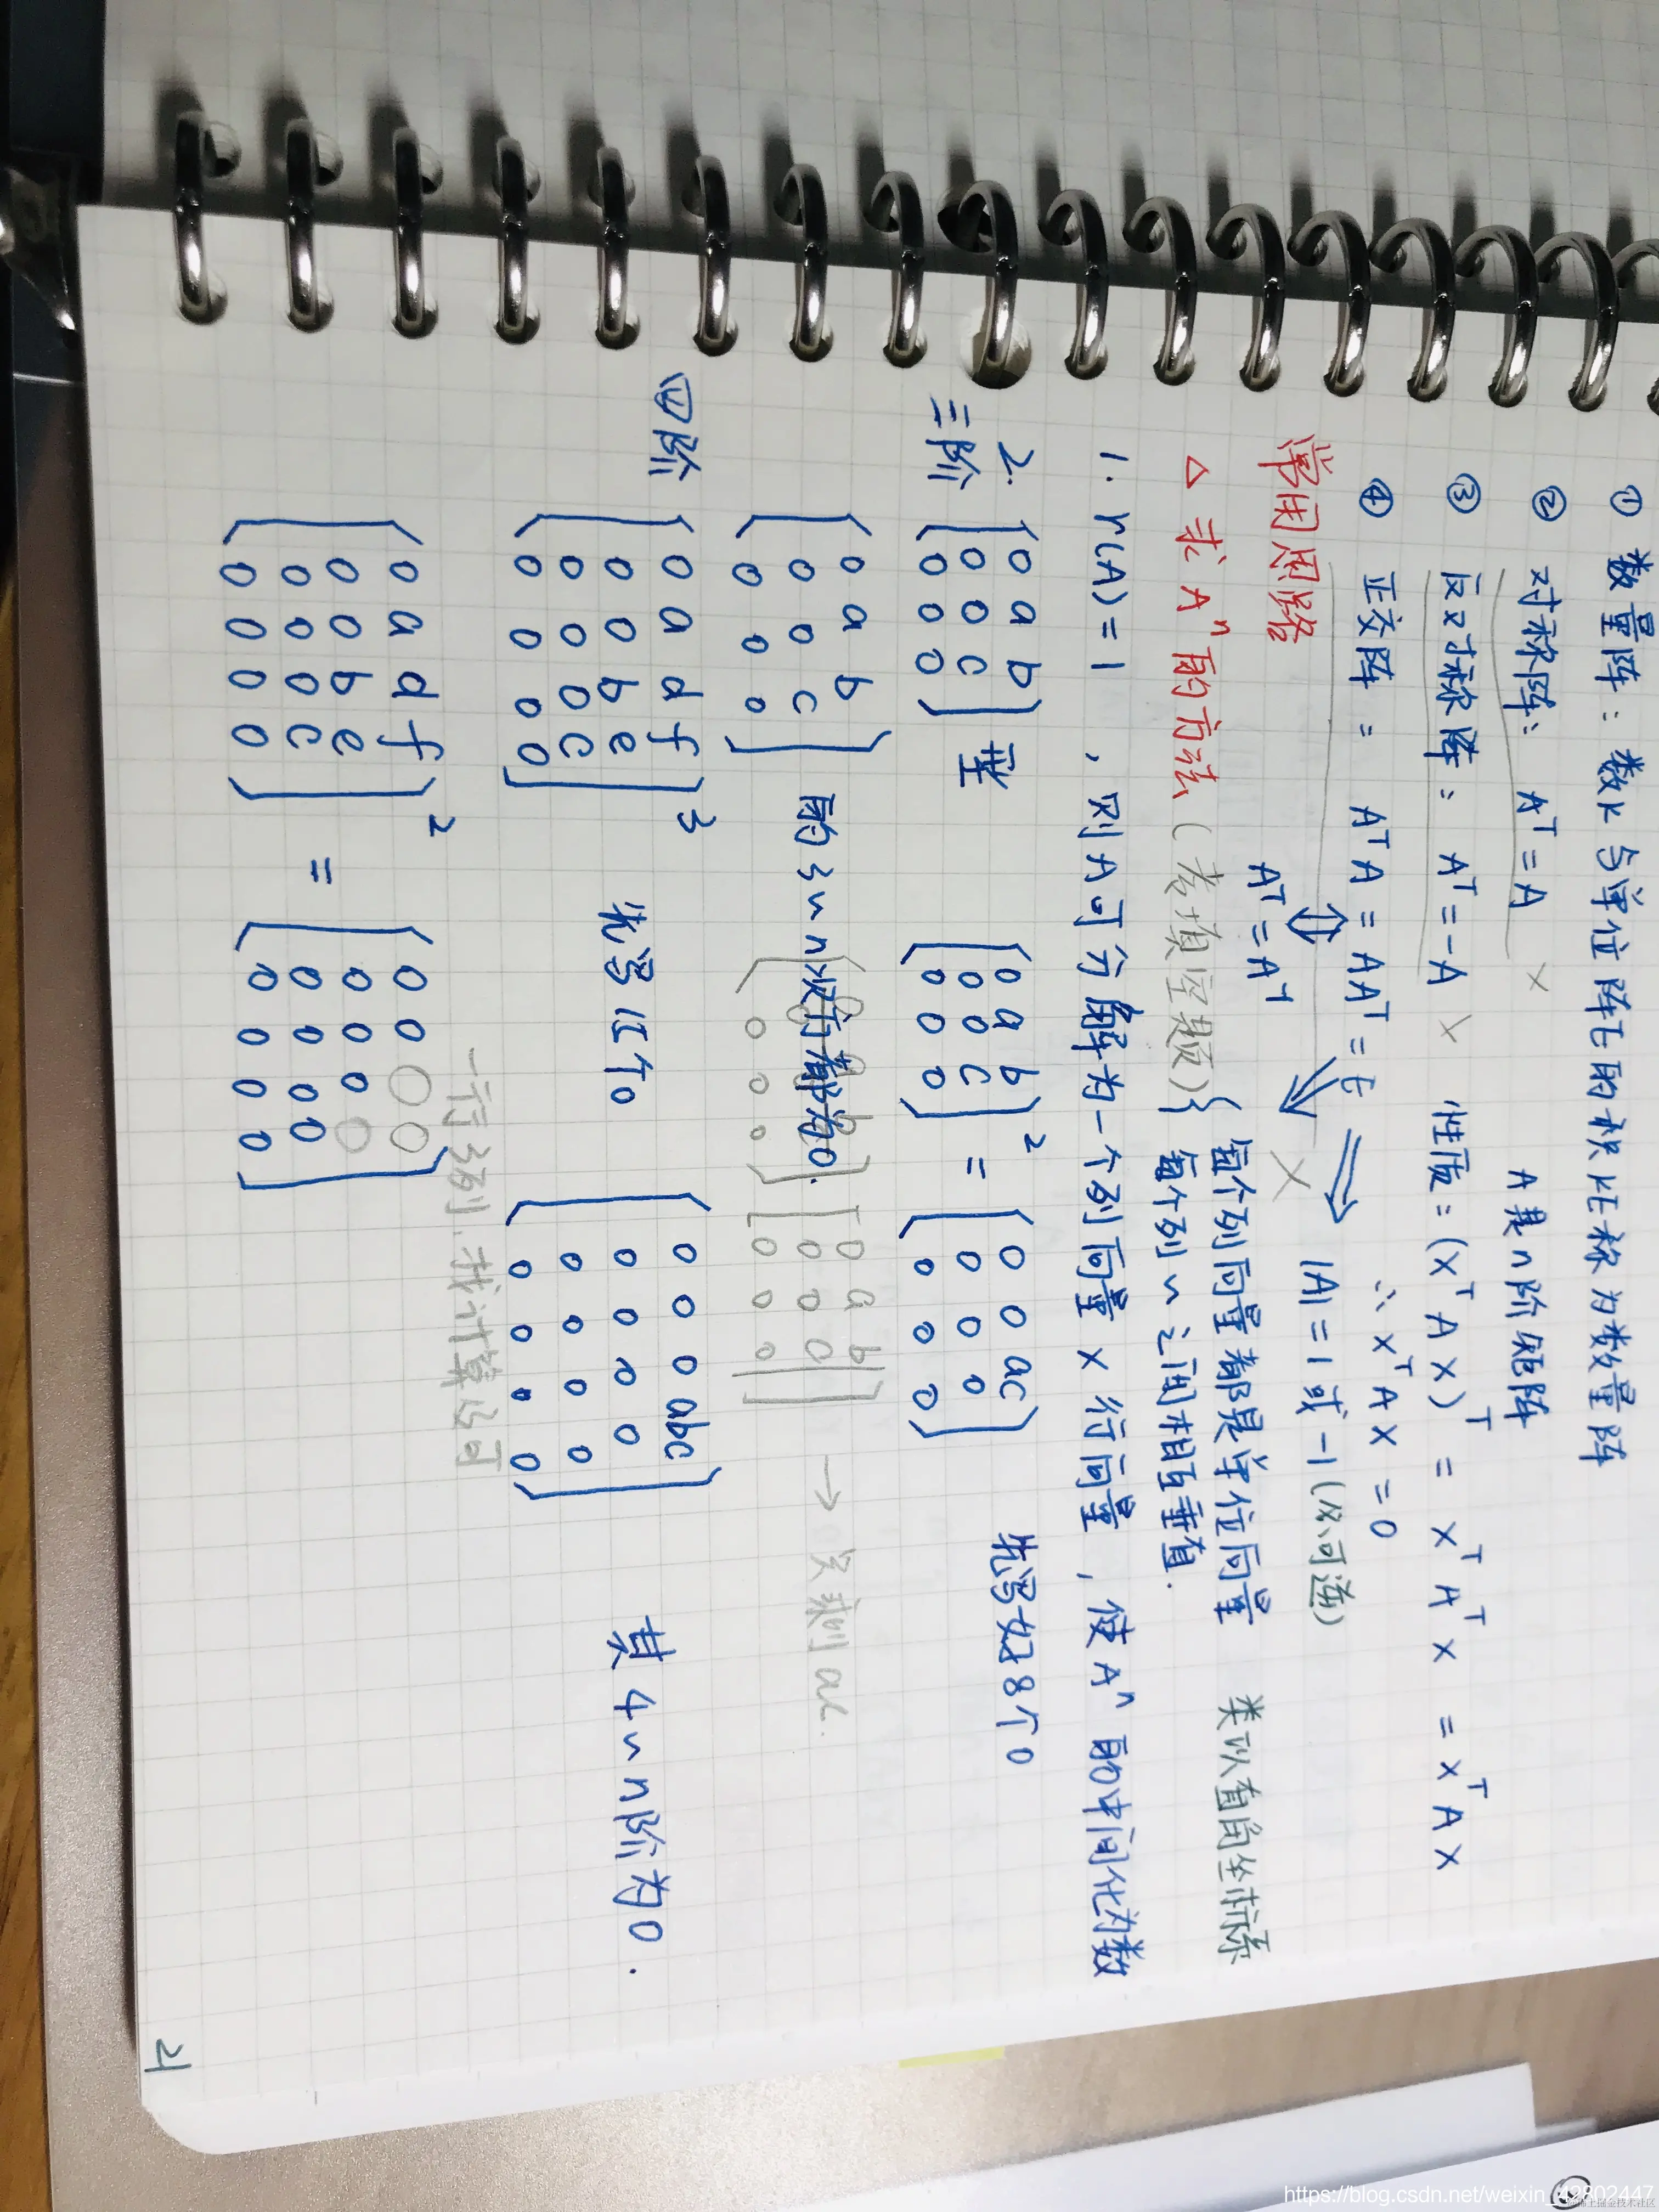 ① 数量阵：数k与单位阵E的积kE称为数量阵
② 对称阵：A^T = A × A是n阶矩阵
③ 反对称阵：A^T = -A × 性质：(x^T A x)^T = x^T A^T x = x^T A x
∴ x^T A x = 0
④ 正交阵： A^T A = A A^T = E ⇒ |A| = 1 或 -1 (必可逆)
⇕ ⇒ ×
A^T = A^-1 { 每个列向量都是单位向量 类似直角坐标系
每个列~之间相互垂直.
常用思路
△ 求A^n的方法 (考填空题)
1. r(A)=1 , 则A可分解为一个列向量 × 行向量 , 使A^n的中间化为数
2. 三阶 (0 a b; 0 0 c; 0 0 0) 型 (0 a b; 0 0 c; 0 0 0)^2 = (0 0 ac; 0 0 0; 0 0 0) 先写好8个0
(0 a b; 0 0 c; 0 0 0) 的3~n次方都为0. → 只剩ac.
四阶 (0 a d f; 0 0 b e; 0 0 0 c; 0 0 0 0)^3 先写15个0 (0 0 0 abc; 0 0 0 0; 0 0 0 0; 0 0 0 0) 其4~n阶为0.
一行3列, 我计算即可
(0 a d f; 0 0 b e; 0 0 0 c; 0 0 0 0)^2 = (0 0 ○ ○; 0 0 0 ○; 0 0 0 0; 0 0 0 0)
21
https://blog.csdn.net/weixin_42802447
@稀土掘金技术社区